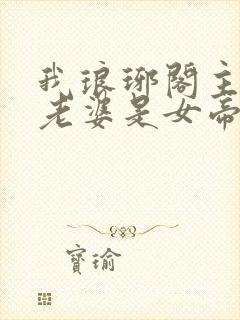 我琅琊閣主
老婆是女帝
寶瑜